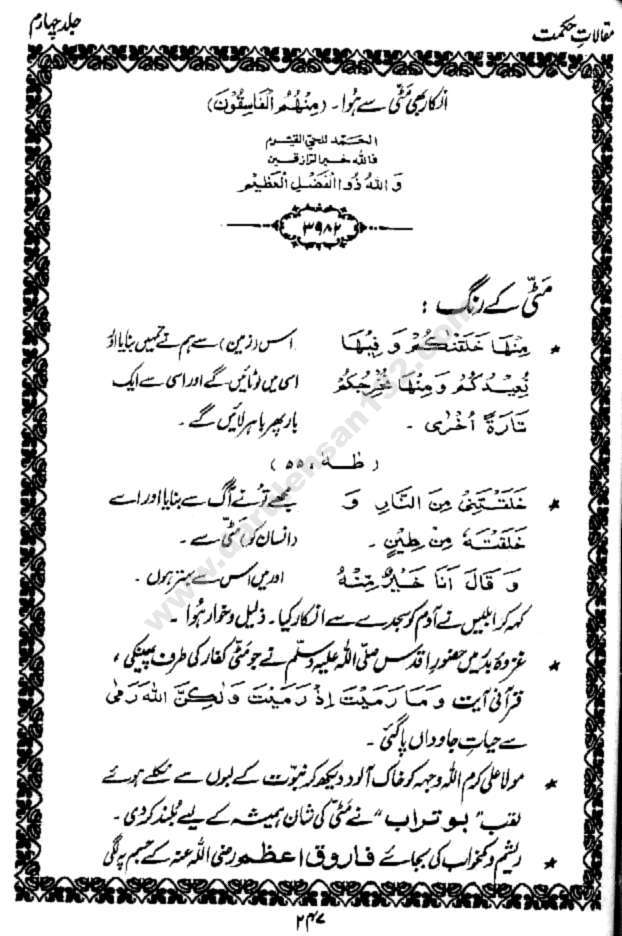 مقالاتِ حکمت
جلد چہارم
انکار بھی مٹی سے ہُوا۔ (مِنْهُمُ الْفَاسِقُوْنَ)
الحَمد للحيّ القيّوم
فالله خير الرازقين
وَ اللهُ ذُو الْفَضْلِ الْعَظِيْمِ
۳۹۸۲
مٹّی کے رنگ :
★ مِنْهَا خَلَقْنٰكُمْ وَ فِيْهَا اس (زمین) سے ہم نے تمہیں بنایا اور
نُعِيْدُكُمْ وَ مِنْهَا نُخْرِجُكُمْ اسی میں لوٹائیں گے اور اسی سے ایک
تَارَةً اُخْرٰى ۔ بار پھر باہر لائیں گے ۔
( طٰـهٰ ، ۵۵ )
★ خَلَقْتَنِيْ مِنَ النَّارِ وَ مجھے تُو نے آگ سے بنایا اور اسے
خَلَقْتَهٗ مِنْ طِيْنٍ ۔ (انسان کو) مٹّی سے ۔
وَ قَالَ اَنَا خَيْرٌ مِّنْهُ اور میں اس سے بہتر ہوں ۔
کہہ کر ابلیس نے آدم کو سجدے سے انکار کیا ۔ ذلیل و خوار ہُوا ۔
★ غزوۂ بدر میں حضورِ اقدس صلّی اللہ علیہ وسلّم نے جو مٹی کفار کی طرف پھینکی ،
قرآنی آیت وَمَا رَمَيْتَ اِذْ رَمَيْتَ وَلٰكِنَّ اللهَ رَمٰى
سے حیاتِ جاوداں پا گئی ۔
★ مولا علی کرم اللہ وجہہ کو خاک آلود دیکھ کر نبوّت کے لبوں سے نکلے ہوئے
لقب "بو تراب" نے مٹی کی شان ہمیشہ کے لیے بُلند کر دی ۔
★ ریشم و کمخواب کی بجائے فاروق اعظم رضی اللہ عنہ کے جسم پر لگی
۲۴۷
www.darulehsan192.com